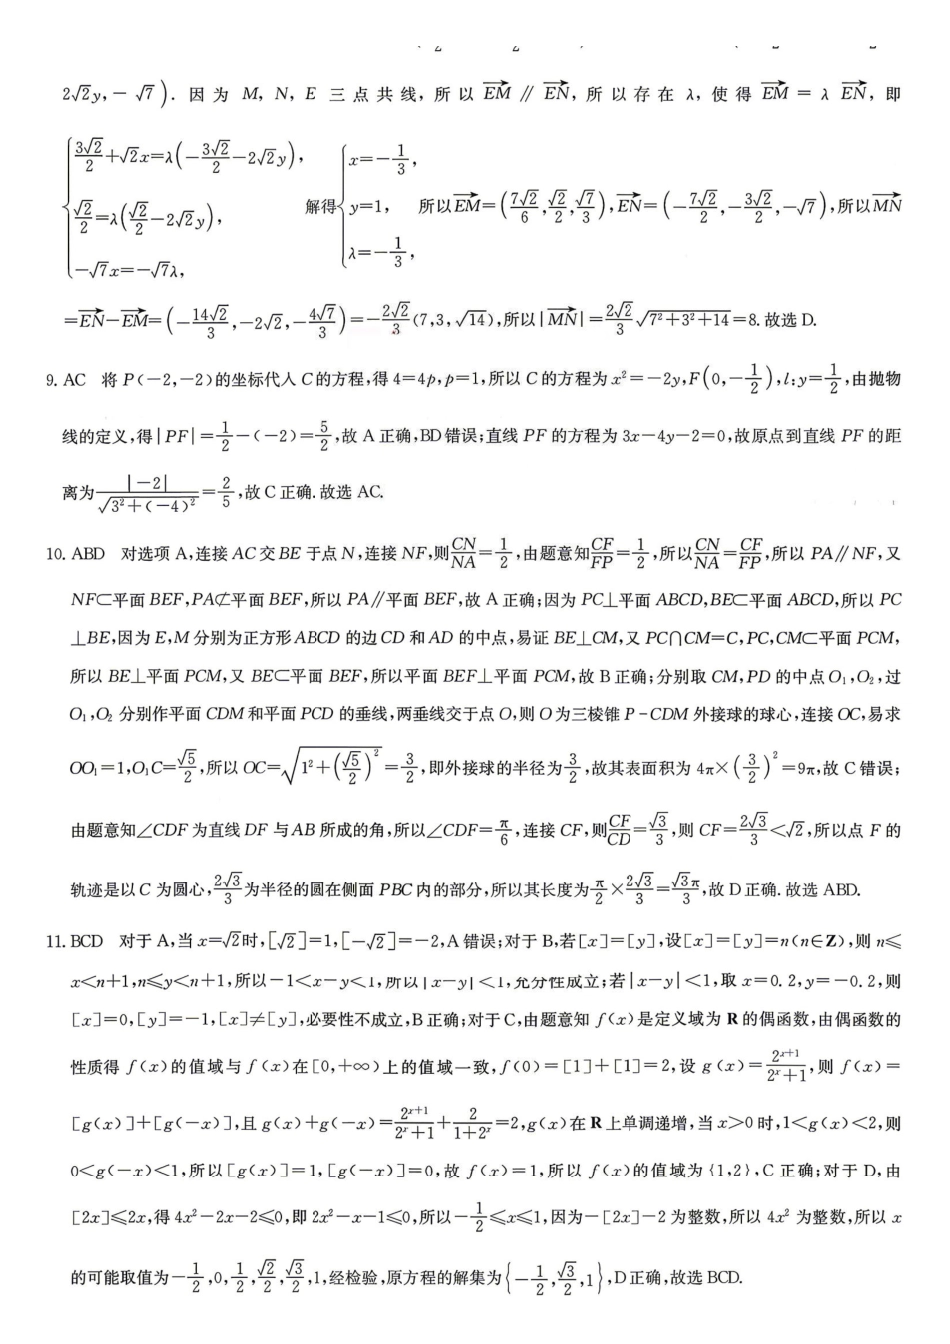 2√2y,−√7). 因为 M, N, E 三点共线, 所以 \overrightarrow{EM} // \overrightarrow{EN}, 所以存在 λ, 使得 \overrightarrow{EM} = λ \overrightarrow{EN}, 即
{ 3√2/2+√2x=λ(−3√2/2−2√2y), √2/2=λ(√2/2−2√2y), −√7x=−√7λ, 解得{ x=−1/3, y=1, λ=−1/3, 所以\overrightarrow{EM}=(7√2/6,√2/2,√7/3),\overrightarrow{EN}=(−7√2/2,−3√2/2,−√7),所以\overrightarrow{MN}
=\overrightarrow{EN}−\overrightarrow{EM}=(−14√2/3,−2√2,−4√7/3)=−2√2/3(7,3,√14),所以|\overrightarrow{MN}|=2√2/3 √(7²+3²+14)=8. 故选 D.
9. AC 将 P(−2,−2)的坐标代人 C的方程,得 4=4p,p=1,所以 C 的方程为 x²=−2y,F(0,−1/2),l:y=1/2,由抛物
线的定义,得|PF|=1/2−(−2)=5/2,故 A 正确,BD 错误;直线 PF 的方程为 3x−4y−2=0,故原点到直线 PF 的距
离为|−2|/√(3²+(−4)²)=2/5,故 C 正确. 故选 AC.
10. ABD 对选项 A,连接 AC 交 BE 于点 N,连接 NF,则CN/NA=1/2,由题意知CF/FP=1/2,所以CN/NA=CF/FP,所以 PA//NF,又
NF⊂平面 BEF,PA⊄平面 BEF,所以 PA//平面 BEF,故 A 正确;因为 PC⊥平面 ABCD,BE⊂平面 ABCD,所以 PC
⊥BE,因为 E,M 分别为正方形 ABCD 的边 CD 和 AD 的中点,易证 BE⊥CM,又 PC∩CM=C,PC,CM⊂平面 PCM,
所以 BE⊥平面 PCM,又 BE⊂平面 BEF,所以平面 BEF⊥平面 PCM,故 B 正确;分别取 CM,PD 的中点 O₁,O₂,过
O₁,O₂ 分别作平面 CDM 和平面 PCD 的垂线,两垂线交于点 O,则 O 为三棱锥 P−CDM 外接球的球心,连接 OC,易求
OO₁=1,O₁C=√5/2,所以 OC=√(1²+(√5/2)²)=3/2,即外接球的半径为3/2,故其表面积为 4π×(3/2)²=9π,故 C 错误;
由题意知∠CDF 为直线 DF 与 AB 所成的角,所以∠CDF=π/6,连接 CF,则CF/CD=√3/3,则 CF=2√3/3<√2,所以点 F 的
轨迹是以 C 为圆心,2√3/3为半径的圆在侧面 PBC 内的部分,所以其长度为π/2×2√3/3=√3π/3,故 D 正确. 故选 ABD.
11. BCD 对于 A,当 x=√2时,[√2]=1,[−√2]=−2,A 错误;对于 B,若[x]=[y],设[x]=[y]=n(n∈Z),则 n≤
x<n+1,n≤y<n+1,所以−1<x−y<1,所以|x−y|<1,充分性成立;若|x−y|<1,取 x=0.2,y=−0.2,则
[x]=0,[y]=−1,[x]≠[y],必要性不成立,B 正确;对于 C,由题意知 f(x)是定义域为 R 的偶函数,由偶函数的
性质得 f(x)的值域与 f(x)在[0,+∞)上的值域一致,f(0)=[1]+[1]=2,设 g(x)=2^{x+1}/(2^x+1),则 f(x)=
[g(x)]+[g(−x)],且 g(x)+g(−x)=2^{x+1}/(2^x+1)+2/(1+2^x)=2,g(x)在 R 上单调递增,当 x>0 时,1<g(x)<2,则
0<g(−x)<1,所以[g(x)]=1,[g(−x)]=0,故 f(x)=1,所以 f(x)的值域为{1,2},C 正确;对于 D,由
[2x]≤2x,得 4x²−2x−2≤0,即 2x²−x−1≤0,所以−1/2≤x≤1,因为−[2x]−2 为整数,所以 4x² 为整数,所以 x
的可能取值为−1/2,0,1/2,√2/2,√3/2,1,经检验,原方程的解集为{−1/2,√3/2,1},D 正确,故选 BCD.